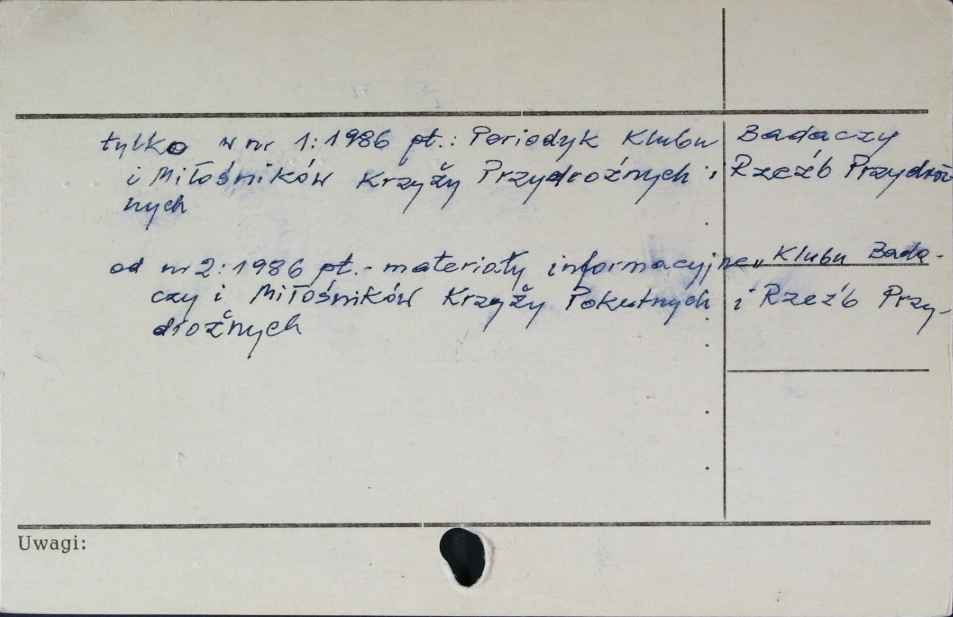 tylko w nr 1:1986 pt.: Periodyk Klubu Badaczy
i Miłośników Krzyży Przydrożnych i Rzeźb Przydroż
nych
od nr 2:1986 pt.- materiały informacyjne Klubu Bada-
czy i Miłośników Krzyży Pokutnych i Rzeźb Przy-
drożnych
Uwagi: